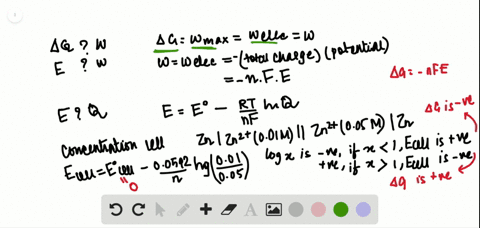 ΔG ? W
ΔG = Wmax = Welec = W
E ? W
W = Welec = -(total charge) (potential)
= -n.F.E
ΔG = -nFE
E ? Q
E = E° - RT/nF ln Q
ΔG is -ve
Concentration cell
Zn | Zn²⁺ (0.01M) || Zn²⁺ (0.05M) | Zn
Ecell = E°cell - 0.0592/n log (0.01/0.05)
log x is -ve, if x < 1, Ecell is +ve
+ve, if x > 1, Ecell is -ve
0
ΔG is +ve